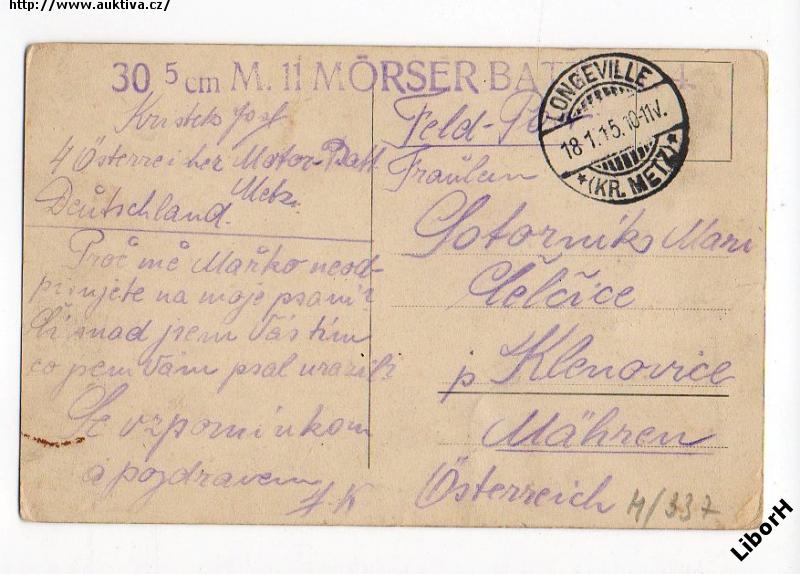 http://www.auktiva.cz/
30 5 cm M. 11 MÖRSER BATT 4
LONGEVILLE
18.1.15.10-11V.
*(KR. METZ)*
Feld-Post
Kristek Josf
4 Österreicher Motor-Batt
Metz
Deutschland.
Fräulein
Sotorniks Mari
Čelčice
p Klenovice
Mähren
Österreich
Proč mě Mařko neod-
pisujete na moje psaní?
Či snad jsem Vás tím
co jsem Vám psal urazil?
Se vzpomínkom
a pozdravem
J.K
M/337
LiborH